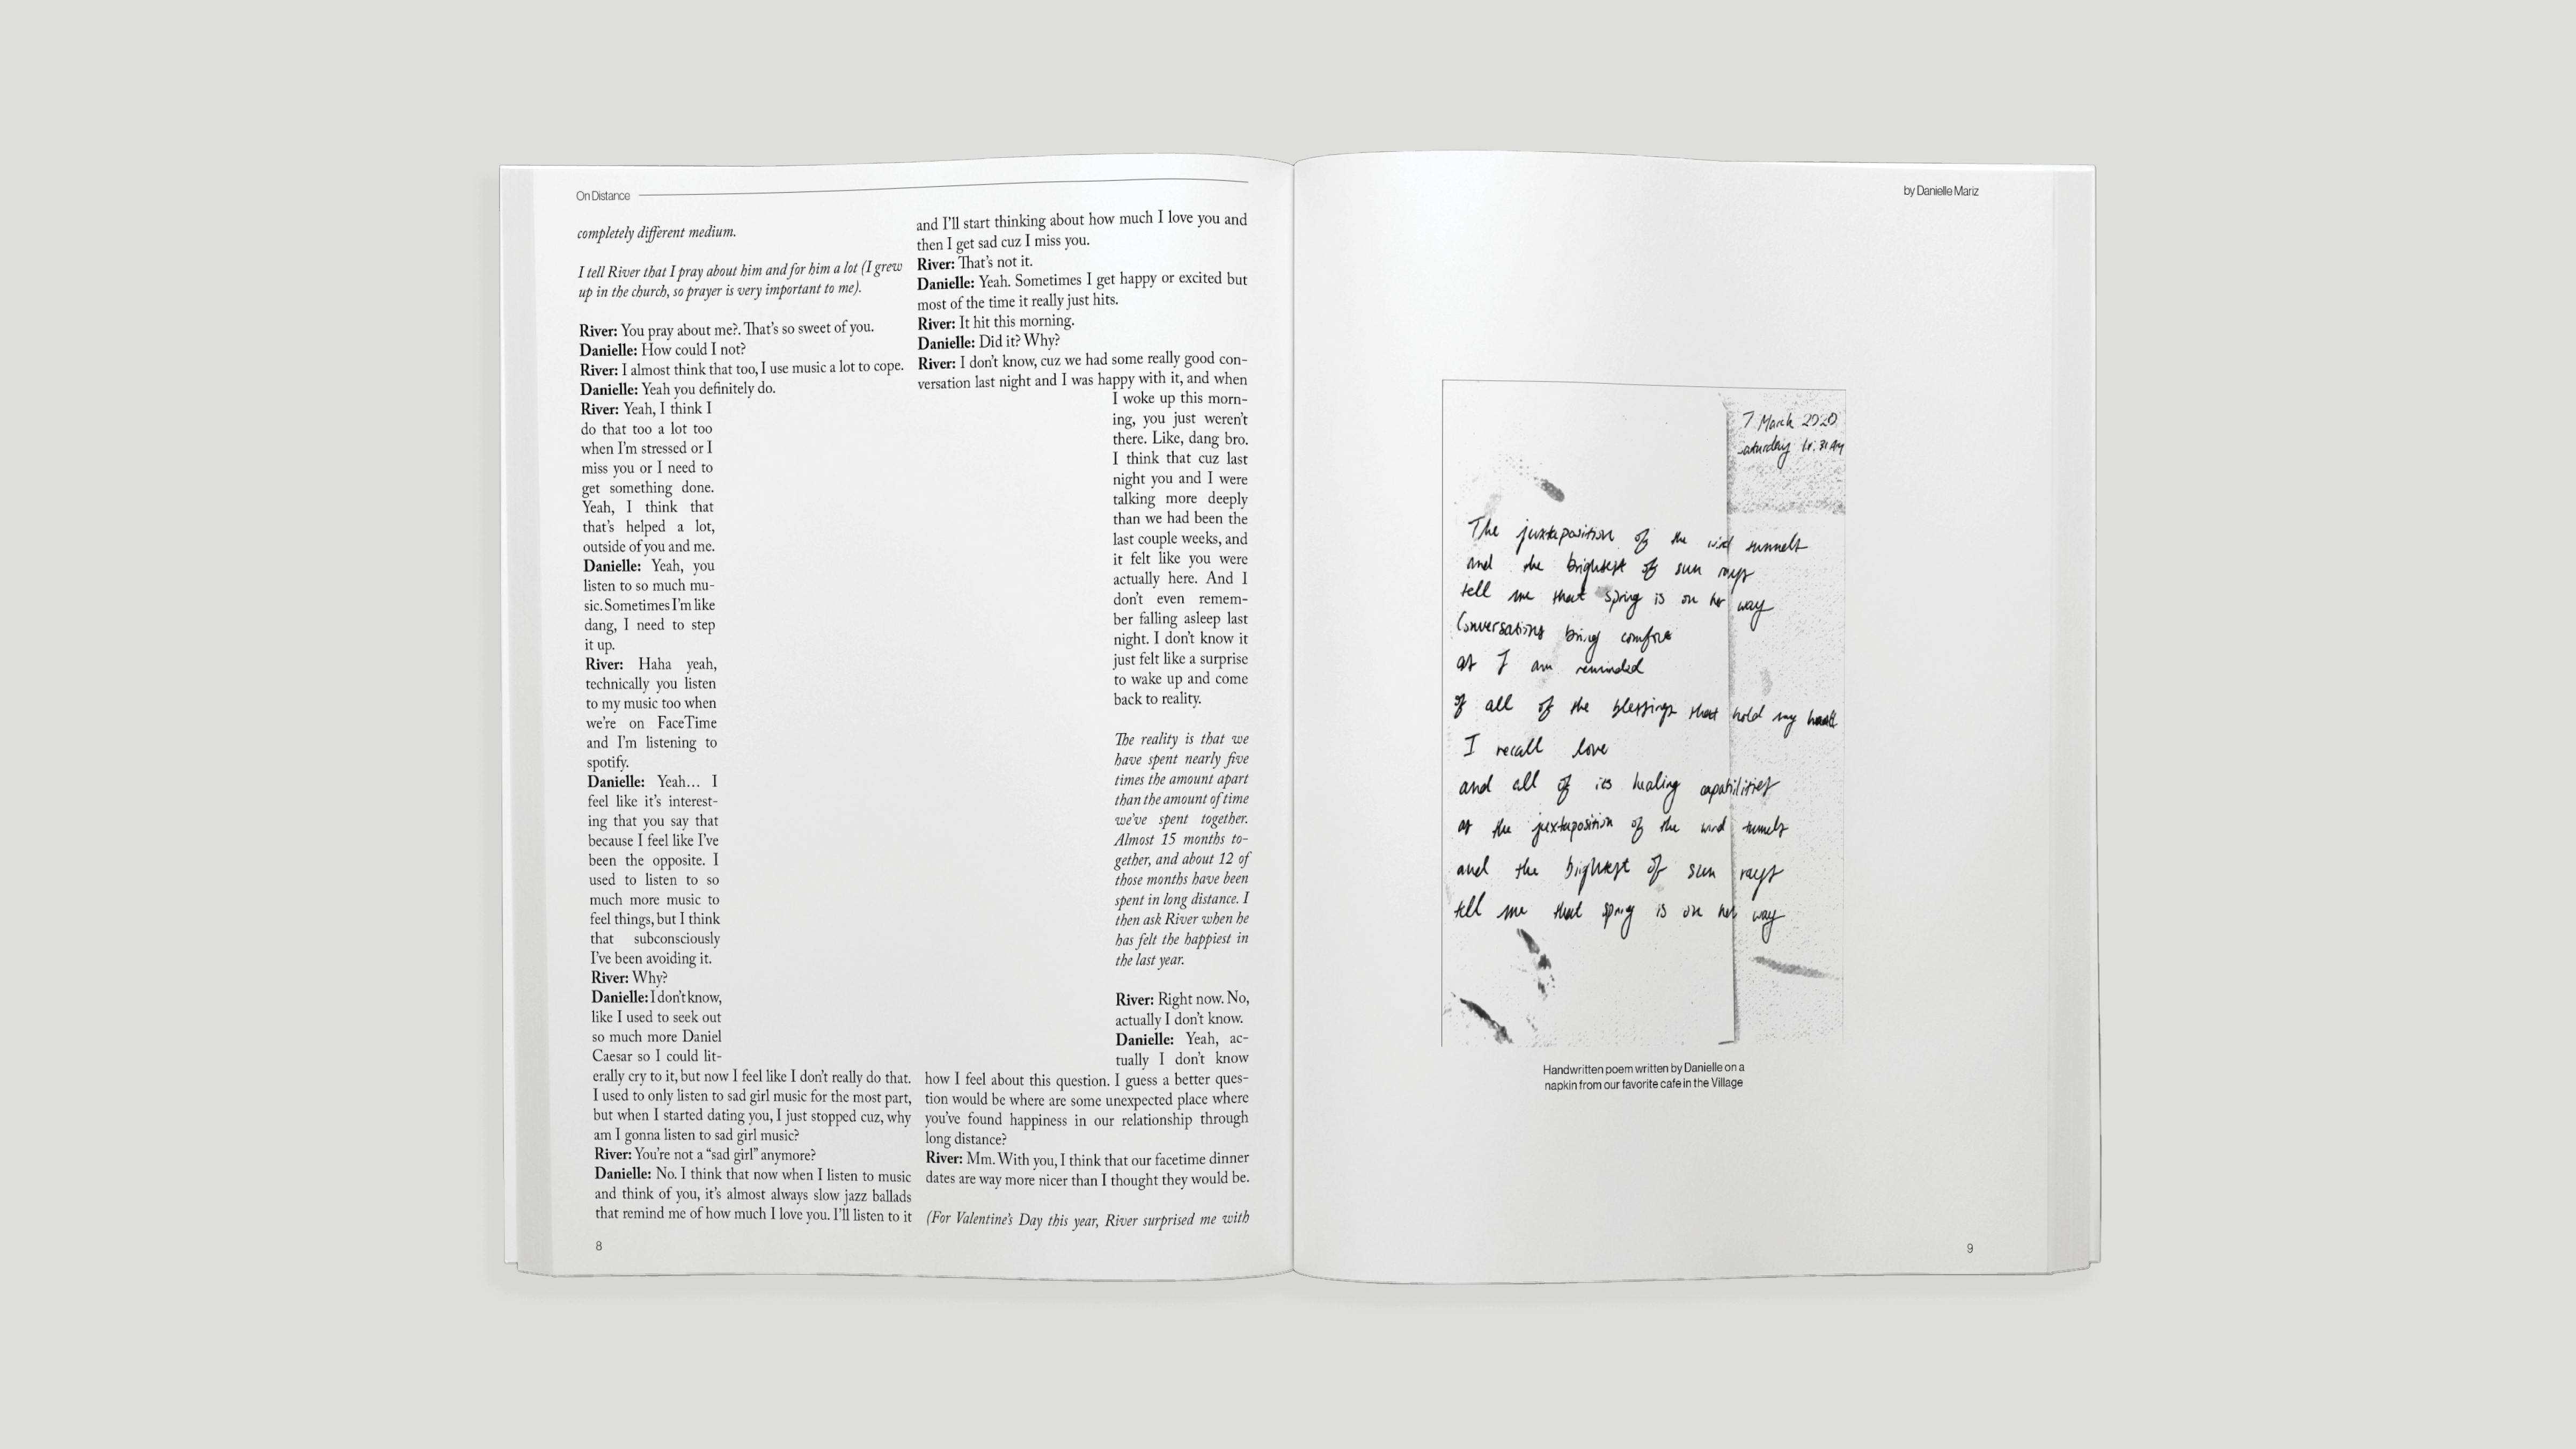 On Distance
completely different medium.
I tell River that I pray about him and for him a lot (I grew
up in the church, so prayer is very important to me).
River: You pray about me?. That's so sweet of you.
Danielle: How could I not?
River: I almost think that too, I use music a lot to cope.
Danielle: Yeah you definitely do.
River: Yeah, I think I
do that too a lot too
when I'm stressed or I
miss you or I need to
get something done.
Yeah, I think that
that's helped a lot,
outside of you and me.
Danielle: Yeah, you
listen to so much mu-
sic. Sometimes I'm like
dang, I need to step
it up.
River: Haha yeah,
technically you listen
to my music too when
we're on FaceTime
and I'm listening to
spotify.
Danielle: Yeah… I
feel like it's interest-
ing that you say that
because I feel like I've
been the opposite. I
used to listen to so
much more music to
feel things, but I think
that subconsciously
I've been avoiding it.
River: Why?
Danielle: I don't know,
like I used to seek out
so much more Daniel
Caesar so I could lit-
erally cry to it, but now I feel like I don't really do that.
I used to only listen to sad girl music for the most part,
but when I started dating you, I just stopped cuz, why
am I gonna listen to sad girl music?
River: You're not a “sad girl” anymore?
Danielle: No. I think that now when I listen to music
and think of you, it's almost always slow jazz ballads
that remind me of how much I love you. I'll listen to it
and I'll start thinking about how much I love you and
then I get sad cuz I miss you.
River: That's not it.
Danielle: Yeah. Sometimes I get happy or excited but
most of the time it really just hits.
River: It hit this morning.
Danielle: Did it? Why?
River: I don't know, cuz we had some really good con-
versation last night and I was happy with it, and when
I woke up this morn-
ing, you just weren't
there. Like, dang bro.
I think that cuz last
night you and I were
talking more deeply
than we had been the
last couple weeks, and
it felt like you were
actually here. And I
don't even remem-
ber falling asleep last
night. I don't know it
just felt like a surprise
to wake up and come
back to reality.
The reality is that we
have spent nearly five
times the amount apart
than the amount of time
we've spent together.
Almost 15 months to-
gether, and about 12 of
those months have been
spent in long distance. I
then ask River when he
has felt the happiest in
the last year.
River: Right now. No,
actually I don't know.
Danielle: Yeah, ac-
tually I don't know
how I feel about this question. I guess a better ques-
tion would be where are some unexpected place where
you've found happiness in our relationship through
long distance?
River: Mm. With you, I think that our facetime dinner
dates are way more nicer than I thought they would be.
(For Valentine's Day this year, River surprised me with
8
by Danielle Mariz
7 March 2020
saturday
The juxtaposition of the wind tunnels
and the brightest of sun rays
tell me that spring is on her way
Conversations bring comfort
as I am reminded
of all of the blessings that hold my
I recall love
and all of its healing capabilities
as the juxtaposition of the wind tunnels
and the brightest of sun rays
tell me that spring is on her way
Handwritten poem written by Danielle on a
napkin from our favorite cafe in the Village
9